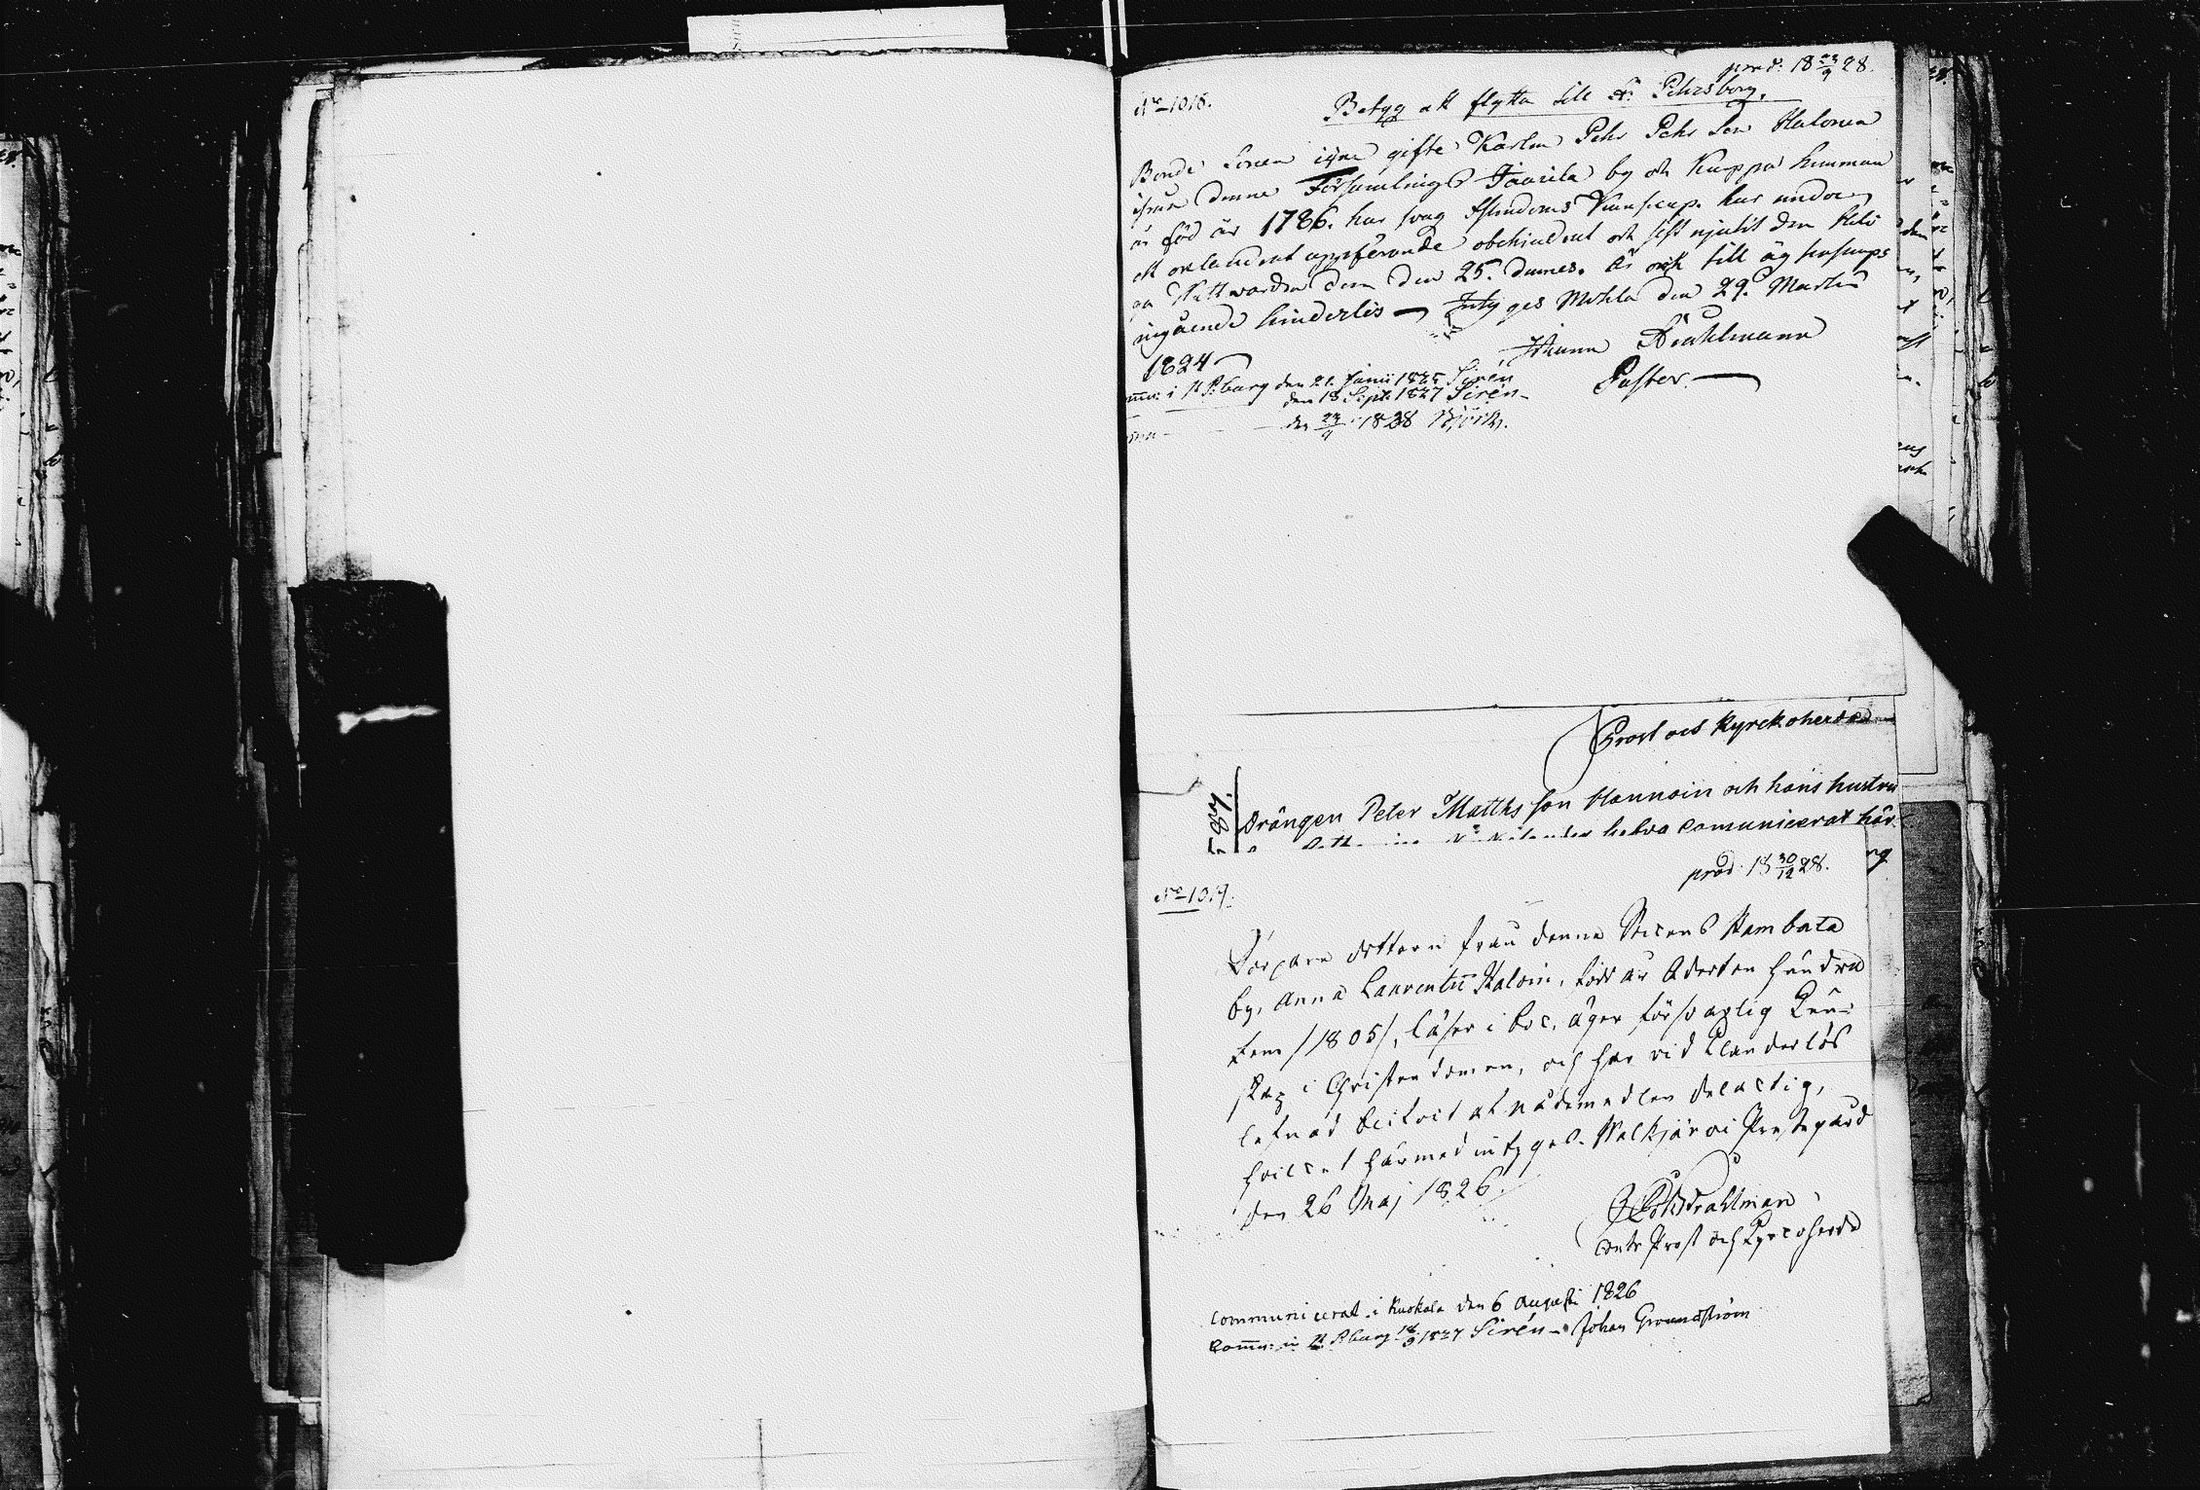 prod. 18 23/9 28.
No 1016.
Betyg att flytta till St. Pehrsborg.
Bonde Sonen ogifte Karlen Pehr Pehr Son Halonen
ifrån denne Församlings Taurila by och Kuppa hemman
är född år 1786. har svag Kunscap. har under
ett oklandrat uppförande obehindrat och sist njutit den Heli
ga Nattvarden den 25. dennes. Är ock till ägtenskaps
ingående hinderlös — Intygas Mohla den 29. Martii
1824
Johann Strahlmann
Pastor.
i St P.burg den 21. Junii 1825 Sirén
den 18 Sept. 1827 Sirén
den 23/9 1828 Björk.
Prost och Kyrckoherde
1887
Drängen Peter Matths son Hannoin och hans hustru
hafva comunicerat här
prod. 18 30/12 28.
No 1017.
Torpare dottern från denne Sockens Kambata
by, Anna Laurentii Haloin, född år Aderton hundra
fem /1805/, läser i boc, äger försvarlig Kun-
skap i Christendomen, och har vid klanderlös
lefnad blifvit af nådemedlen delactig,
hvilcet härmed intygas. Walkjärvi Prestegård
den 26 Maj 1826.
Strahlman
Contr Prost och Kyrcoherde
Communicerat i Kuokala den 6 Augusti 1826
Johan Grounström
Comm: in St P.burg 18/9 1827 Sirén